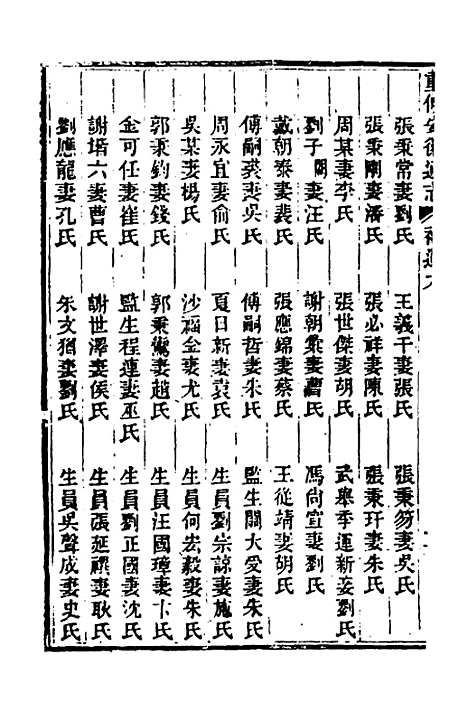 重修安徽通志
張秉常妻劉氏　王義千妻張氏　張秉笏妻吳氏
張秉剛妻潘氏　張必祥妻陳氏　張秉玕妻朱氏
周某妻李氏　張世傑妻胡氏　武舉季運新妾劉氏
劉子關妻汪氏　謝朝彙妻曹氏　馮尚宣妻劉氏
戴朝泰妻裴氏　張應錦妻蔡氏　王從靖妻胡氏
傅嗣裘妻吳氏　傅嗣哲妻朱氏　監生關大受妻朱氏
周永宜妻俞氏　夏日新妻袁氏　生員劉宗諒妻施氏
吳某妻楊氏　沙福金妻尤氏　生員何宏毅妻朱氏
郭秉鈞妻錢氏　郭秉鸞妻趙氏　生員汪國璋妻卞氏
金可任妻崔氏　監生程蓮妻巫氏　生員劉正國妻沈氏
謝堦六妻曹氏　謝世澤妻侯氏　生員張延禩妻耿氏
劉應龍妻孔氏　朱文猶妻劉氏　生員吳聲成妻史氏